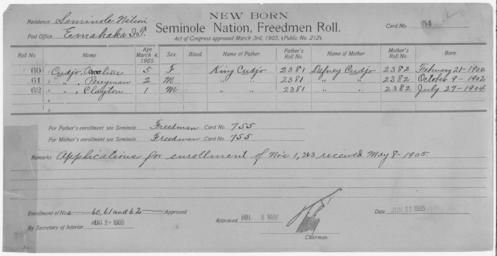 NEW BORN
Residence Seminole Nation
Seminole Nation, Freedmen Roll.
Card No. 54
Post Office Emahaka I.T.
Act of Congress approved March 3rd, 1905, (Public No. 212).
Roll No. Name Age March 4, 1905 Sex. Blood. Name of Father Father's Roll No. Name of Mother Mother's Roll No. Born.
60 Cudjo, 5 F. King Cudjo 2381 Defney Cudjo 2382 February 21-1900
61 " , Perryman 2 M. " " 2381 " " 2382 October 9-1902
62 " , Clayton 1 M. " " 2381 " " 2382 July 27-1904
For Father's enrollment see Seminole Freedman Card No. 755
For Mother's enrollment see Seminole Freedman Card No. 755
Remarks Applications for enrollment of No's 1,2&3 received May 8-1905
Enrollment of Nos 60, 61 and 62 Approved
By Secretary of Interior AUG 2 - 1905
Approved
Chairman
Date 1905